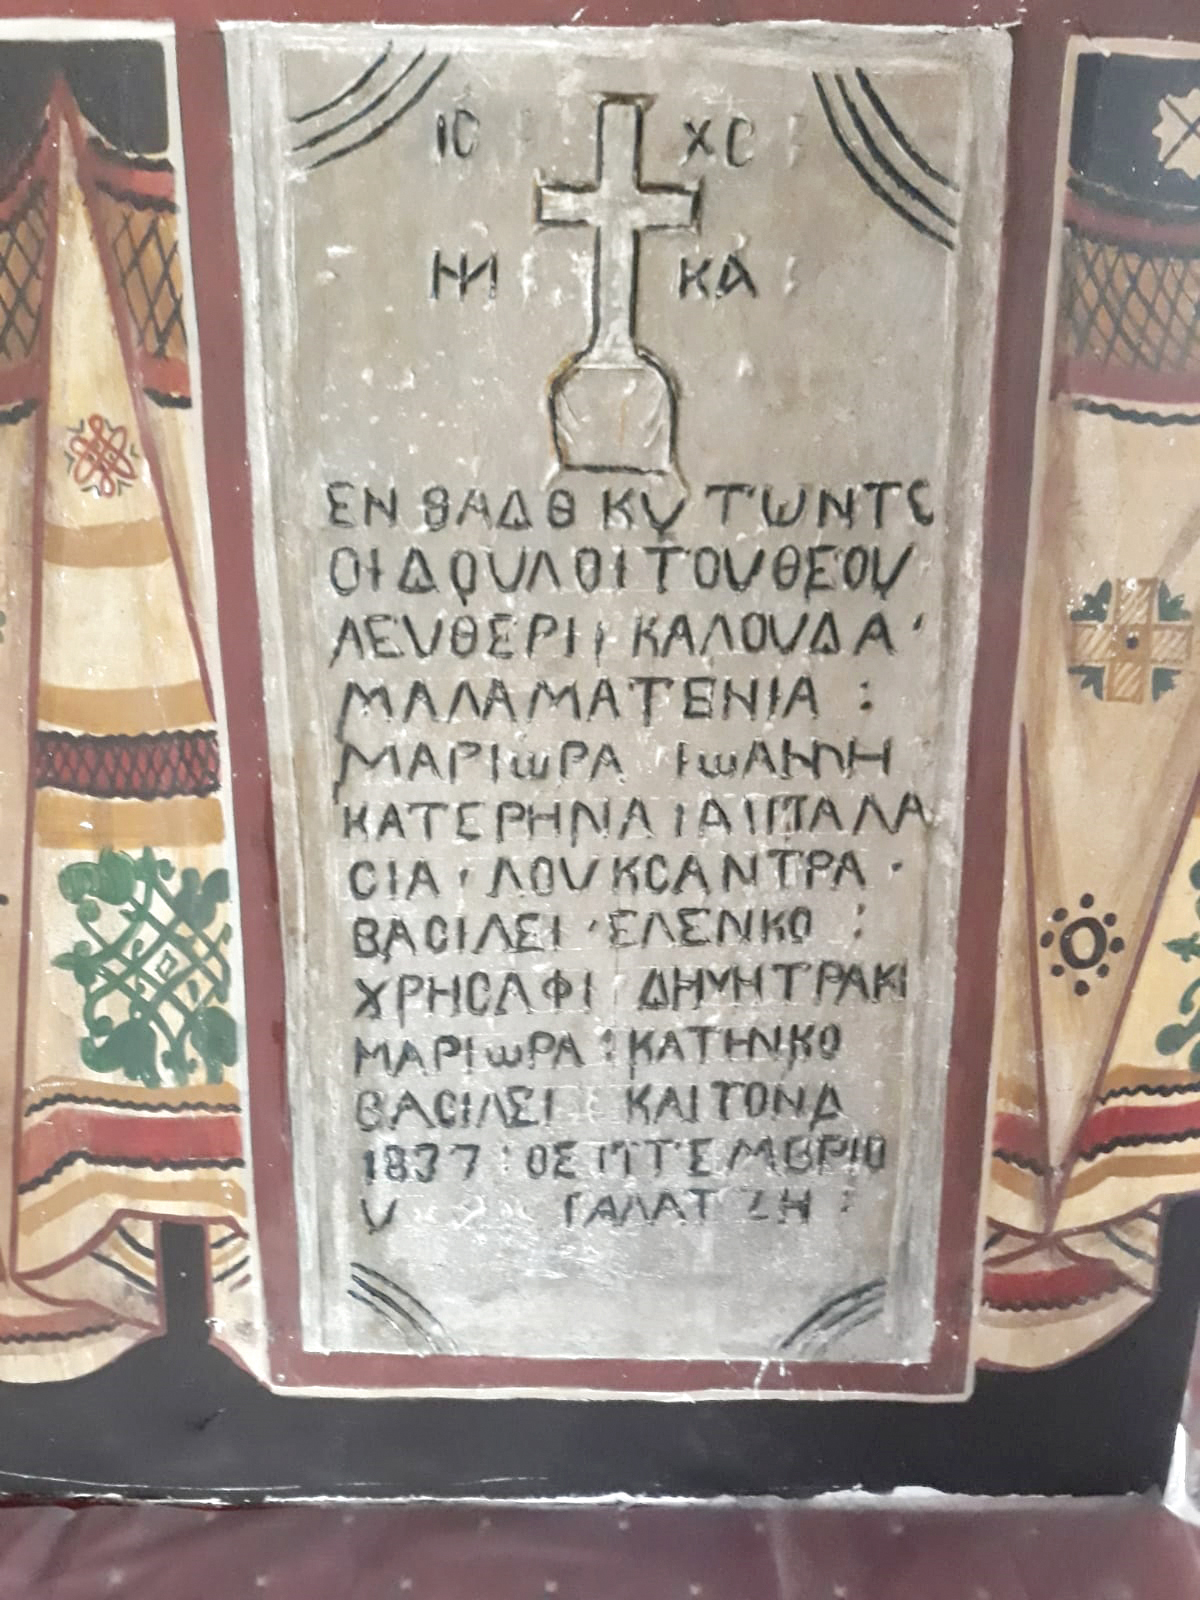 ΙC ΧC
ΝΙ ΚΑ
ΕΝ ΘΑΔΘ ΚΥ ΤΩΝΤΕ
ΟΙ ΔΟΥΛΟΙ ΤΟΥ ΘΕΟΥ
ΛΕΥΘΕΡΙ ΚΑΛΟΥΔΑ
ΜΑΛΑΜΑΤΕΝΙΑ :
ΜΑΡΙωΡΑ ΙωΑΝΝΗ
ΚΑΤΕΡΗΝΑ
CΙΑ · ΛΟΥΚCΑΝΤΡΑ ·
ΒΑCΙΛΕΙ · ΕΛΕΝΚΟ :
ΧΡΗCΑΦΙ ΔΗΜΗΤΡΑΚΙ
ΜΑΡΙωΡΑ : ΚΑΤΗΝΚΟ
ΒΑCΙΛΕΙ ΚΑΙ ΤΟΝΔ
1837 : ΟΣΠΤΕΜΒΡΙΟ
Υ ΓΑΛΑΤΖΗ :